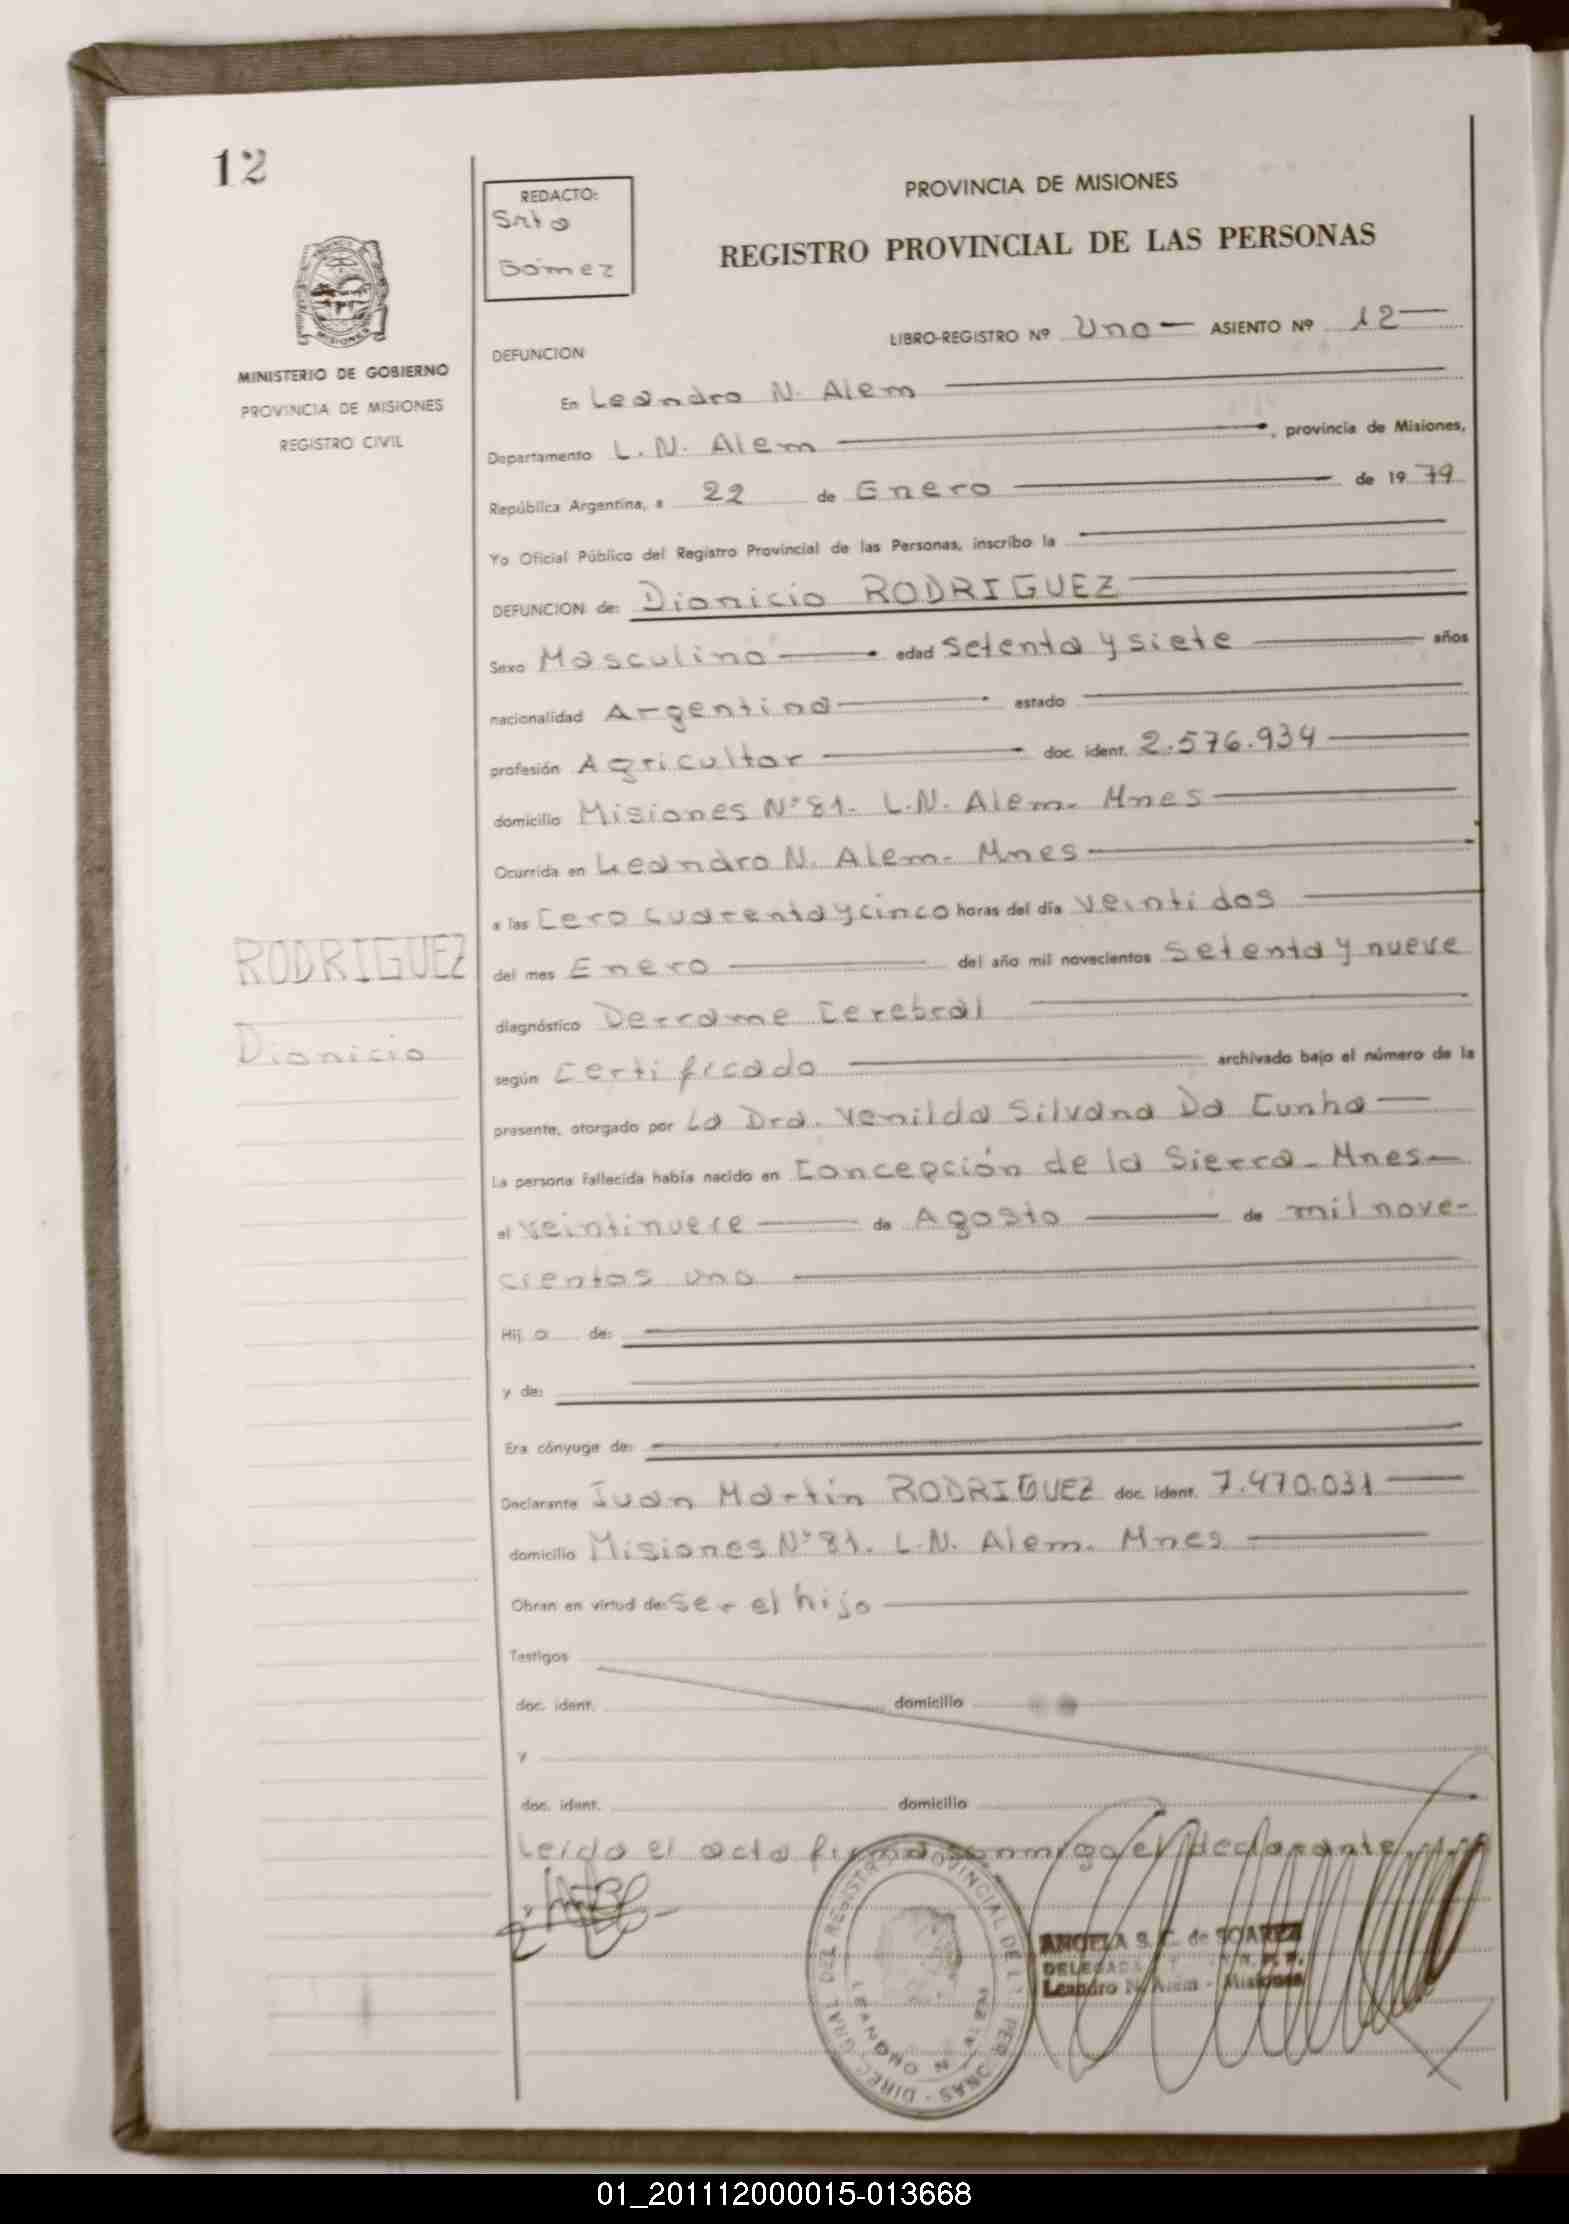 12
REDACTO:
Srta
Gómez
PROVINCIA DE MISIONES
REGISTRO PROVINCIAL DE LAS PERSONAS
MISIONES
MINISTERIO DE GOBIERNO
PROVINCIA DE MISIONES
REGISTRO CIVIL
LIBRO-REGISTRO Nº Uno — ASIENTO Nº 12 —
DEFUNCION
En Leandro N. Alem
Departamento L. N. Alem , provincia de Misiones,
República Argentina, a 22 de Enero de 1979
Yo Oficial Público del Registro Provincial de las Personas, inscribo la
DEFUNCION de: Dionicio RODRIGUEZ
Sexo Masculino edad Setenta y siete años
nacionalidad Argentina estado
profesión Agricultor doc. ident. 2.576.934
domicilio Misiones Nº 81. L.N. Alem. Mnes
Ocurrida en Leandro N. Alem. Mnes
a las Cero cuarenta y cinco horas del día veintidos
RODRIGUEZ
Dionicio
del mes Enero del año mil novecientos setenta y nueve
diagnóstico Derrame Cerebral
según Certificado archivado bajo el número de la
presente, otorgado por La Dra. Venilda Silvana Da Cunha
La persona fallecida había nacido en Concepción de la Sierra - Mnes
el veintinueve de Agosto de mil nove-
cientos uno
Hij o de:
y de:
Era cónyuge de:
Declarante Juan Martín RODRIGUEZ doc. ident. 7.470.031
domicilio Misiones Nº 81. L.N. Alem. Mnes
Obran en virtud de: Ser el hijo
Testigos
doc. ident. domicilio
y
doc. ident. domicilio
Leída el acta firma conmigo el declarante
DIREC. GRAL DEL REGISTRO PROVINCIAL DE L PERSONAS
LEANDRO N. ALEM
ANGELA S. C. de SOAREZ
DELEGADA
Leandro N. Alem - Misiones
01_201112000015-013668